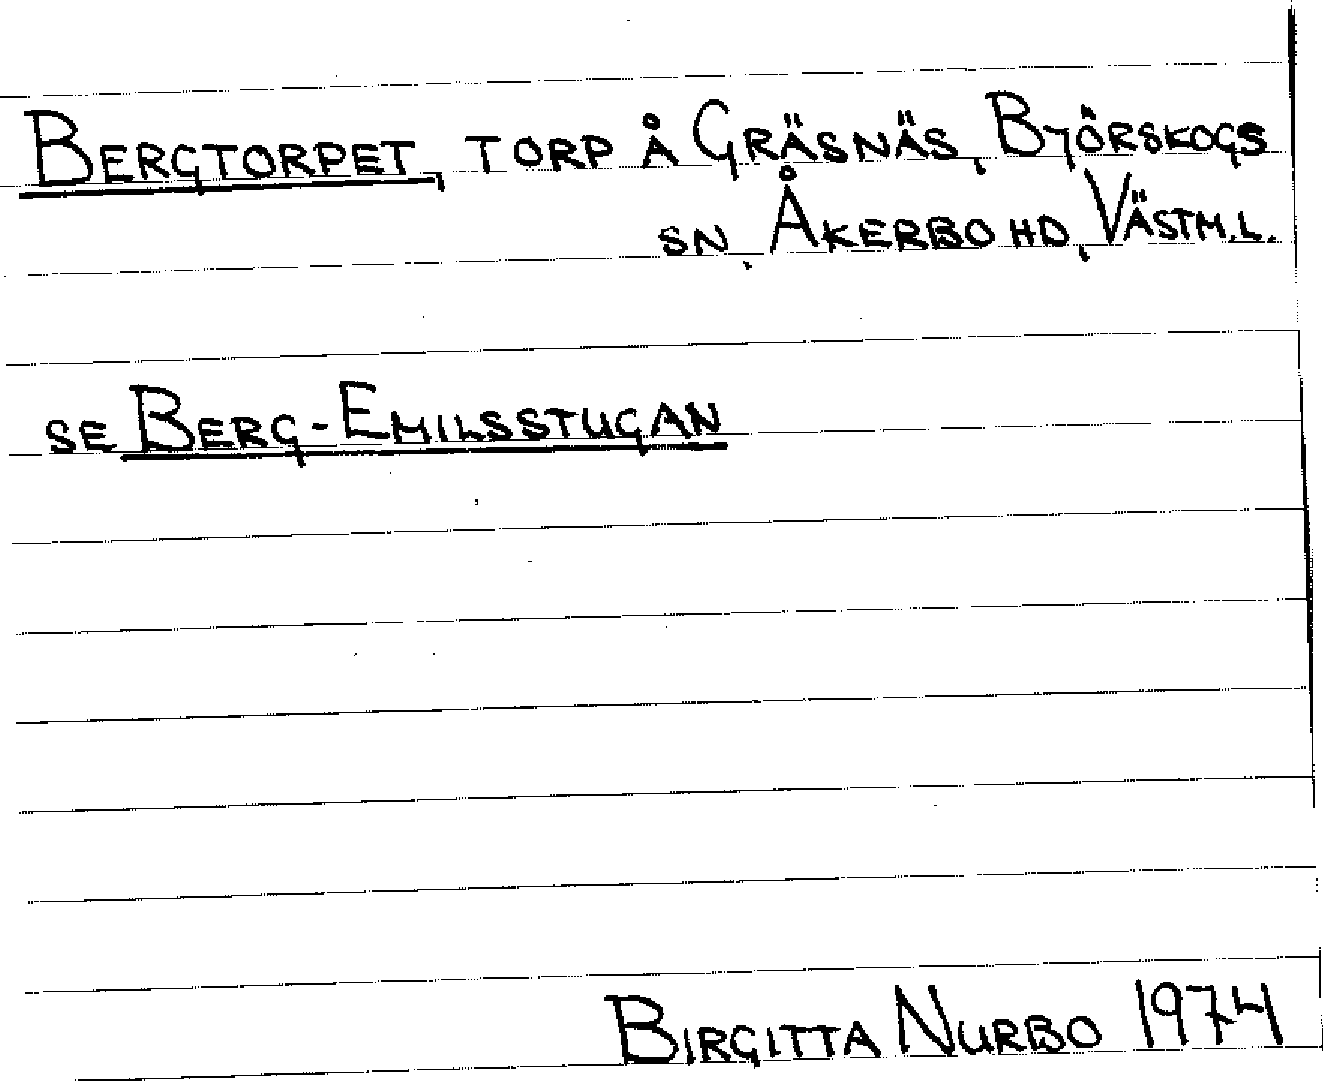 BERGTORPET, TORP Å GRÄSNÄS, BJÖRSKOGS
SN, ÅKERBO HD, VÄSTM.L.
SE BERG-EMILSSTUGAN
BIRGITTA NURBO 1974